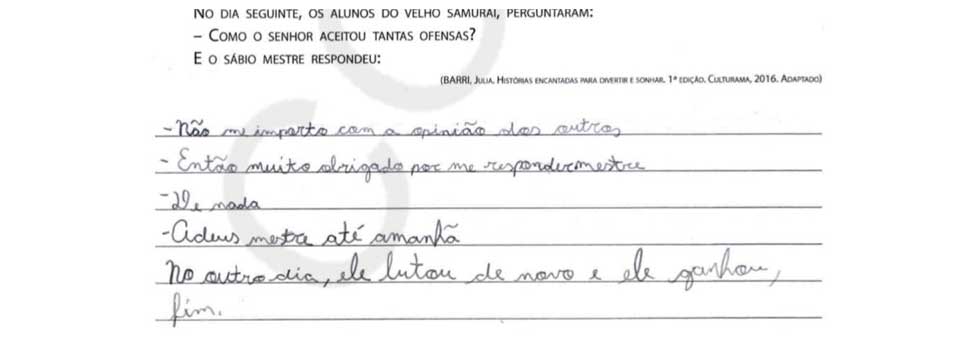 NO DIA SEGUINTE, OS ALUNOS DO VELHO SAMURAI, PERGUNTARAM:
– COMO O SENHOR ACEITOU TANTAS OFENSAS?
E O SÁBIO MESTRE RESPONDEU:
(BARRI, JULIA. HISTÓRIAS ENCANTADAS PARA DIVERTIR E SONHAR. 1ª EDIÇÃO. CULTURAMA, 2016. ADAPTADO)
- Não me importo com a opinião dos outros
- Então muito obrigado por me responder mestre
- De nada
- Adeus mestre até amanhã
No outro dia, ele lutou de novo e ele ganhou,
fim.